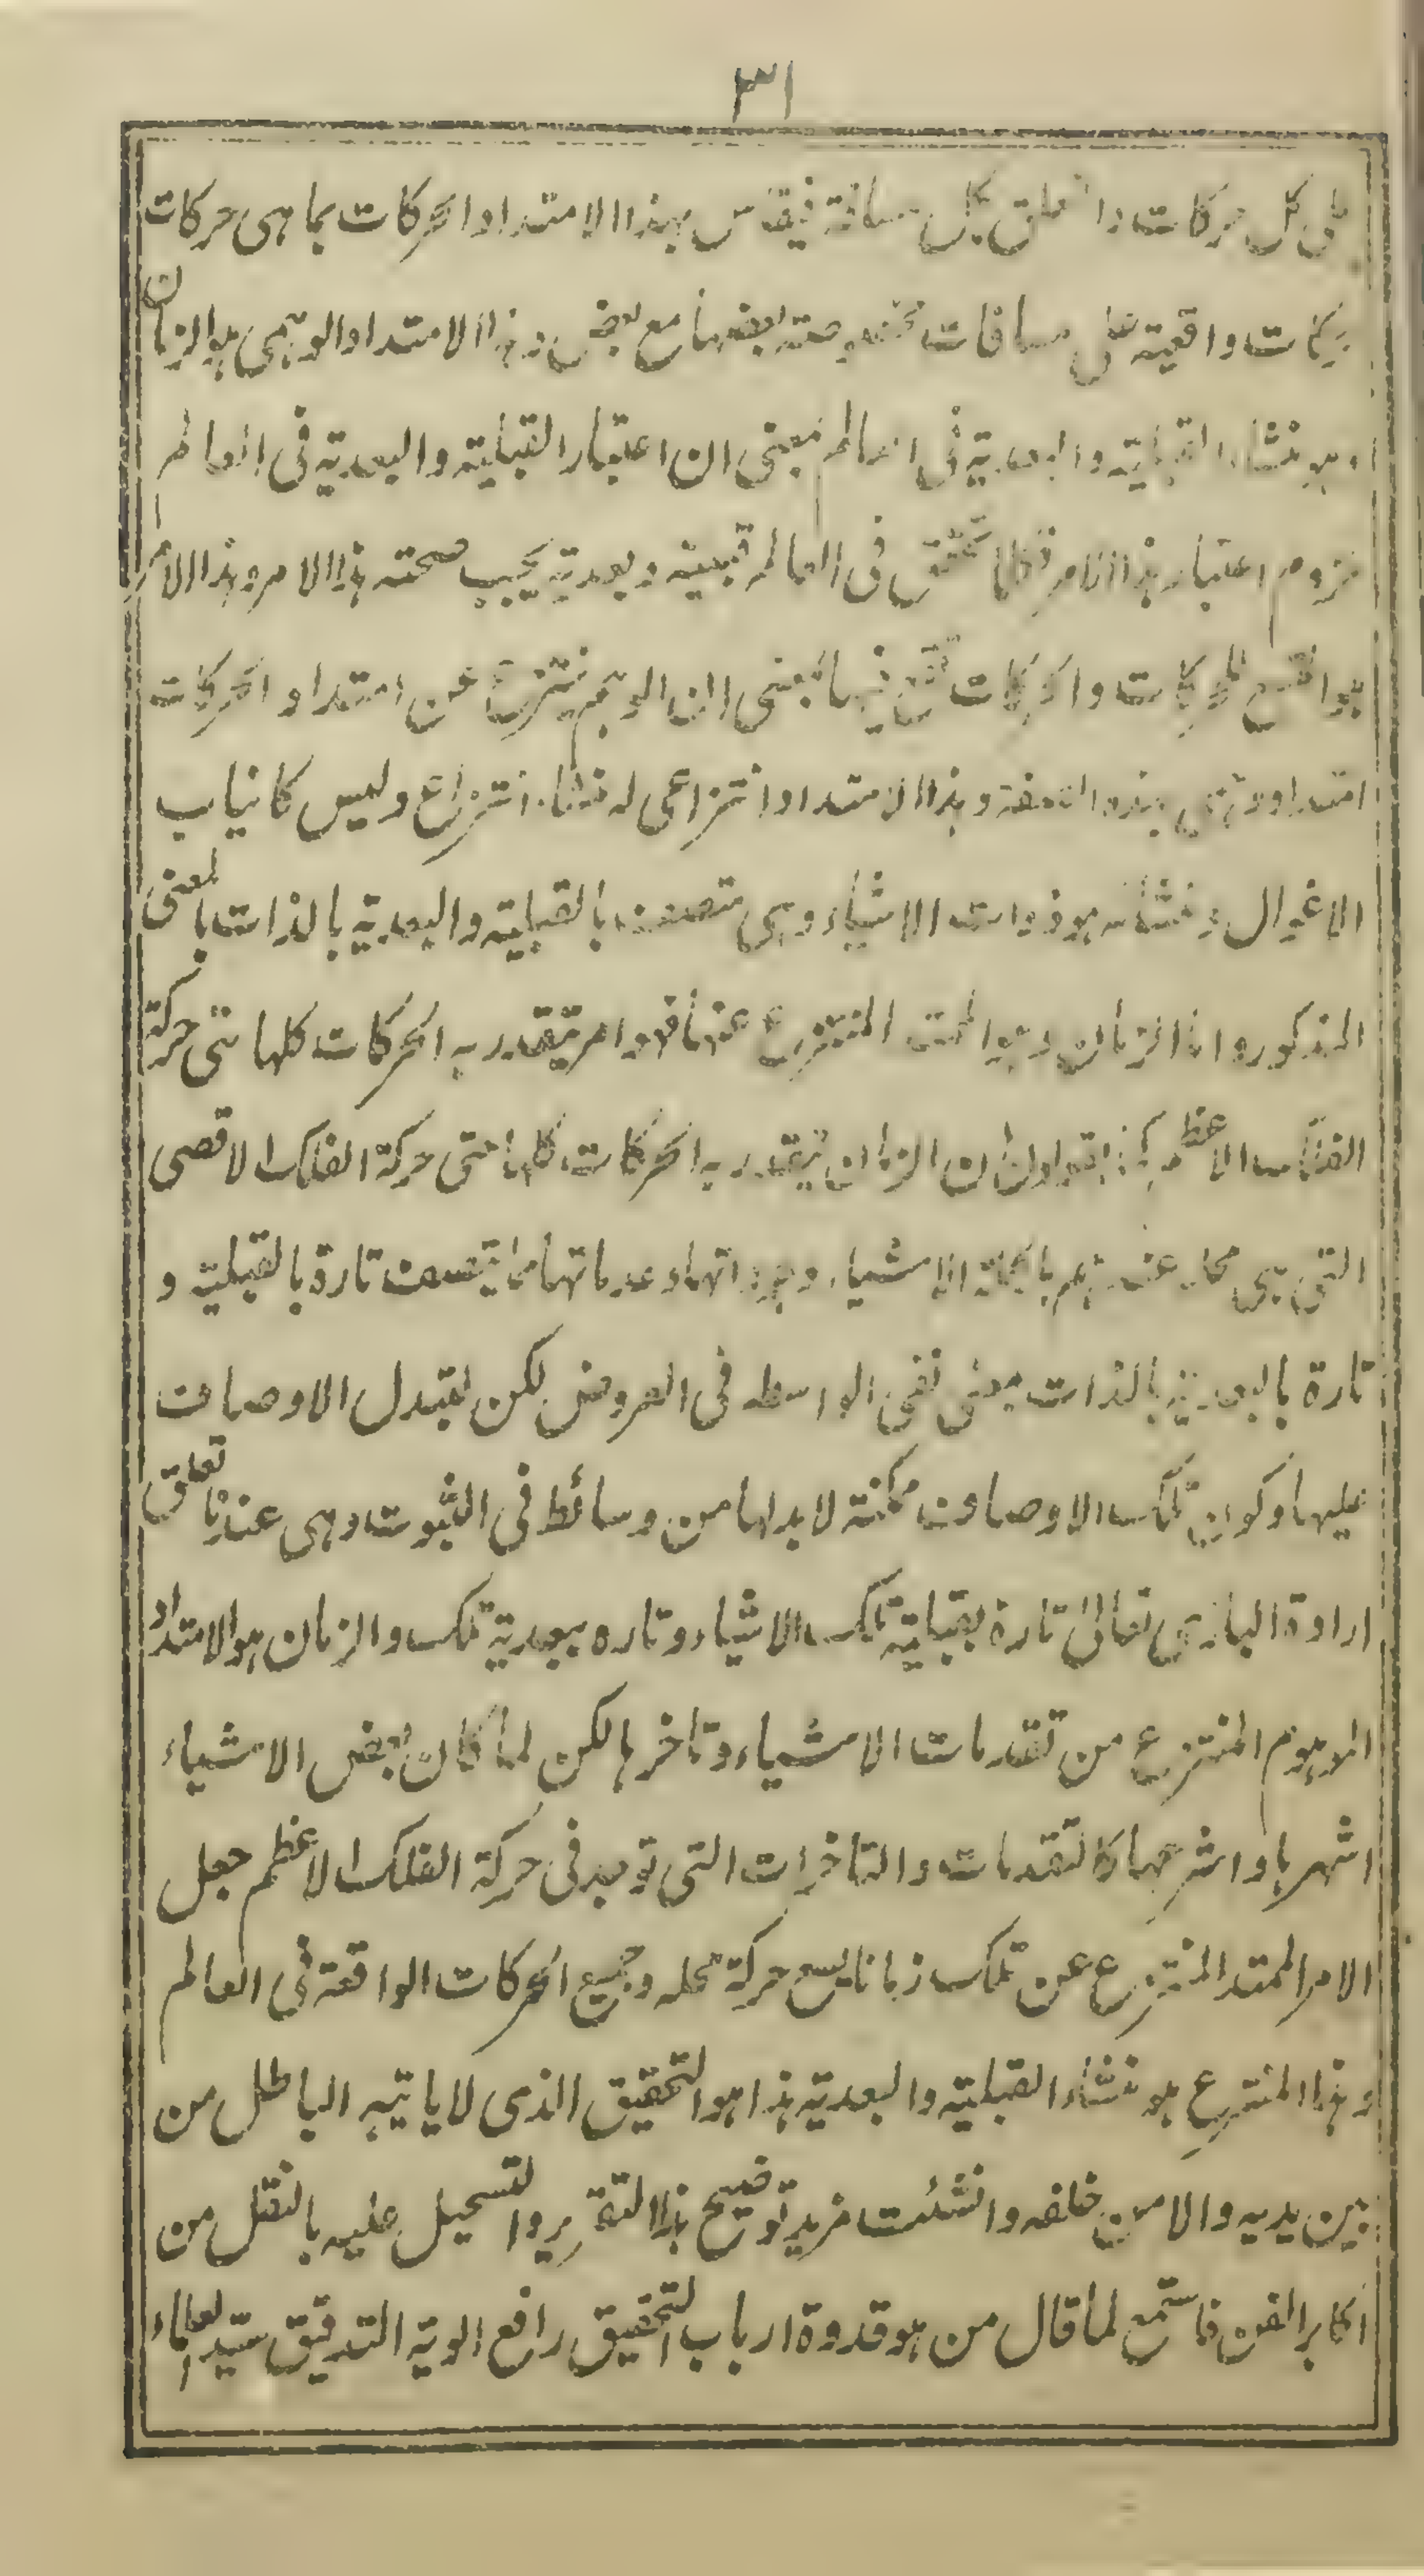 ٣١
على كل حركات وا بكل مسافة فيقاس بهذا الامتداد الحركات بما هى حركات
حركات واقعية على مسافات مخصوصة بعضها مع بعض وهذا الامتداد الوهمى هو الزمان
وهو منشاء القبلية والبعدية فى العالم بمعنى ان اعتبار القبلية والبعدية فى العالم
ملزوم اعتبار هذا الامر فكلما تحقق فى العالم قبلية وبعدية يجب صحته هذا الامر وهذا الامر
هو اتسع للحركات والحركات تقع فيها بمعنى ان الوهم ينتزع عن امتداد الحركات
امتداد وهمى بهذه الصفة وهذا الامتداد انتزاعى له منشاء انتزاع وليس كانياب
الاغوال ومنشائه هو ذوات الاشياء وهى متصفة بالقبلية والبعدية بالذات بالمعنى
المذكور واما الزمان وهو الممتد المنتزع عنها فهو امر يتقدر به الحركات كلها حتى حركة
الفلك الاعظم كما يقولون ان الزمان يتقدر به الحركات كلها حتى حركة الفلك الاقصى
التى هى محله عندهم بالجملة الاشياء وجوداتها وعدماتها مما يتصف تارة بالقبلية و
تارة بالبعدية بالذات بمعنى نفى الواسطه فى العروض لكن لتبدل الاوصاف
عليها وكون تلك الاوصاف ممكنة لابد لها من وسائط فى الثبوت وهى عندنا تعلق
ارادة البارى تعالى تارة بقبلية تلك الاشياء وتاره ببعدية تلك والزمان هو الامتداد
الموهوم المنتزع من تقدمات الاشياء وتاخرها لكن لما كان بعض الاشياء
اشهرها واشرعها كالتقدمات والتاخرات التى توجد فى حركة الفلك الاعظم جعل
الامر الممتد المنتزع عن تلك زمانا يسع حركة محله وجميع الحركات الواقعة فى العالم
وهذا المنتزع هو منشاء القبلية والبعدية هذا هو التحقيق الذى لا ياتيه الباطل من
بين يديه والا من خلفه وانشئت مزيد توضيح هذا التقرير والتسجيل عليه بالنقل من
اكابر الفن فاستمع لما قال من هو قدوة ارباب التحقيق رافع الوية التدقيق سيد العلماء